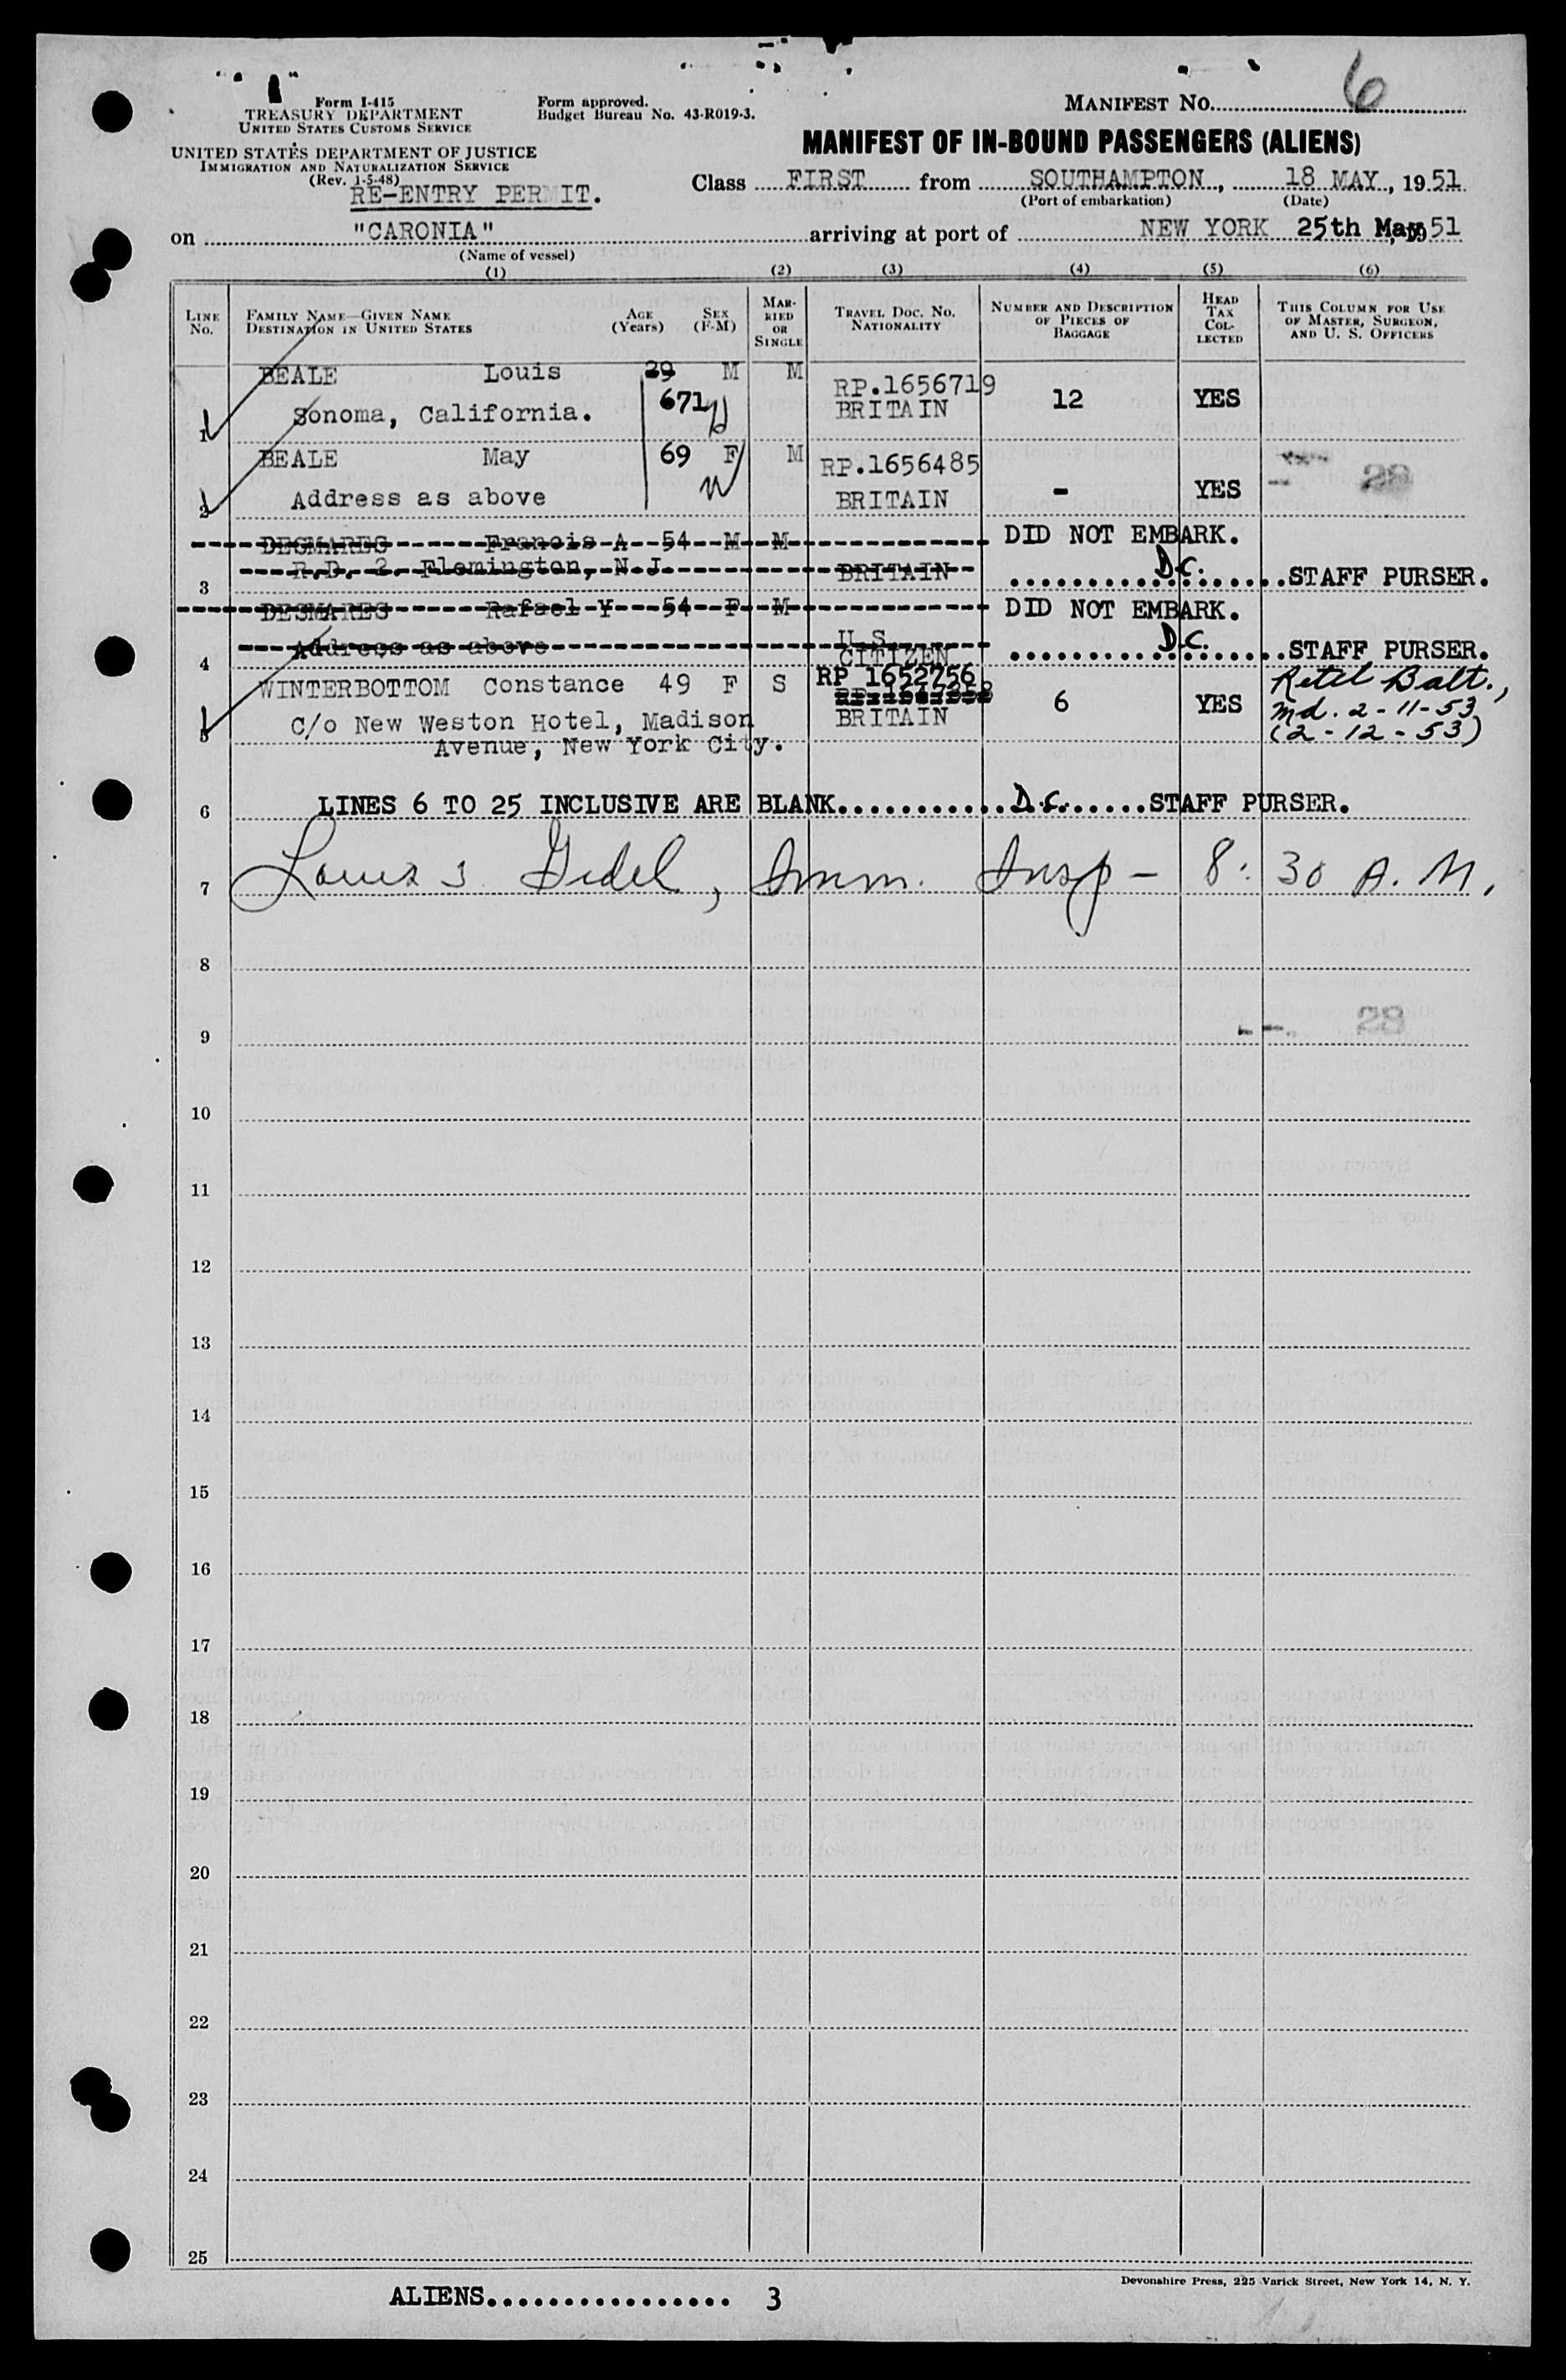 Form I-415
TREASURY DEPARTMENT
UNITED STATES CUSTOMS SERVICE
UNITED STATES DEPARTMENT OF JUSTICE
IMMIGRATION AND NATURALIZATION SERVICE
(Rev. 1-5-48)
RE-ENTRY PERMIT.
Form approved.
Budget Bureau No. 43-R019-3.
MANIFEST NO. 6
MANIFEST OF IN-BOUND PASSENGERS (ALIENS)
Class FIRST from SOUTHAMPTON, 18 MAY, 1951
(Port of embarkation) (Date)
on "CARONIA" arriving at port of NEW YORK 25th May 51
(Name of vessel)
(1) (2) (3) (4) (5) (6)
LINE NO. FAMILY NAME—GIVEN NAME DESTINATION IN UNITED STATES AGE (Years) SEX (F-M) MARRIED OR SINGLE TRAVEL DOC. NO. NATIONALITY NUMBER AND DESCRIPTION OF PIECES OF BAGGAGE HEAD TAX COLLECTED THIS COLUMN FOR USE OF MASTER, SURGEON, AND U. S. OFFICERS
BEALE Louis 29 M M RP.1656719
1 Sonoma, California. 671 BRITAIN 12 YES
BEALE May 69 F M RP.1656485
2 Address as above BRITAIN - YES 28
DESMARES Francis A 54 M M DID NOT EMBARK.
3 R.D. 2. Flemington, N.J. BRITAIN D.C. STAFF PURSER.
DESMARES Rafael Y 54 F M DID NOT EMBARK.
4 Address as above U.S. CITIZEN D.C. STAFF PURSER.
WINTERBOTTOM Constance 49 F S RP 1652756 6 YES
5 C/o New Weston Hotel, Madison BRITAIN
Avenue, New York City.
Md. 2-11-53
(2-12-53)
6 LINES 6 TO 25 INCLUSIVE ARE BLANK............D.C.......STAFF PURSER.
7 Gidel, Imm. Insp - 8:30 A.M.
8
9 28
10
11
12
13
14
15
16
17
18
19
20
21
22
23
24
25
Devonshire Press, 225 Varick Street, New York 14, N. Y.
ALIENS................. 3